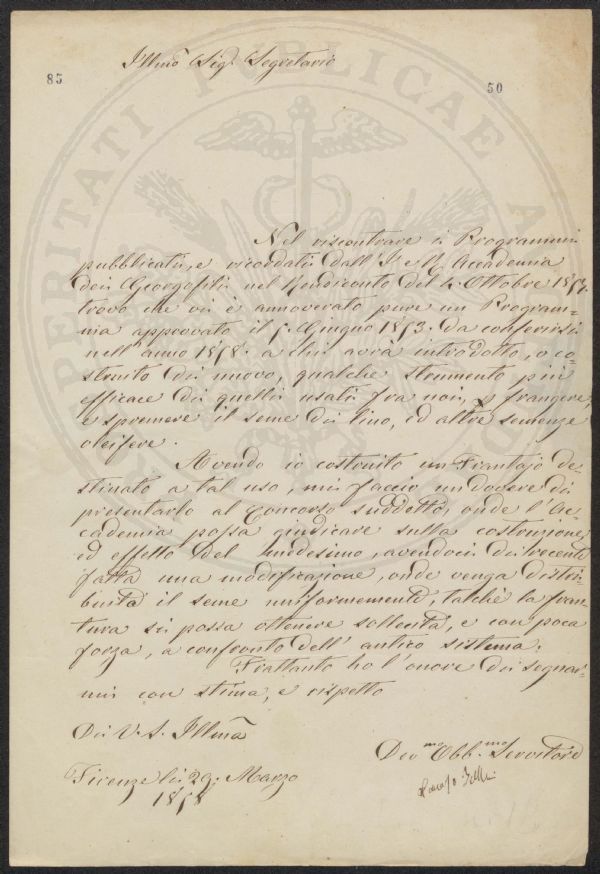 Illmo Sig.r Segretario
85
50
Nel riscontrare i Programmi
pubblicati, e ricordati dall' I. e R. Accademia
dei Georgofili nel Rendiconto del 4. Ottobre 1857.
trovo che vi è annoverato pure un Program-
ma approvato il 5. Giugno 1853. da conferirsi
nell'anno 1858. a chi avrà introdotto, o co-
struito di nuovo, qualche strumento più
efficace di quelli usati fra noi, p frangere,
e spremere il seme di lino, ed altre semenze
oleifere.
Avendo io costruito un Frantojo de-
stinato a tal uso, mi faccio un dovere di
presentarlo al Concorso suddetto, onde l'Ac-
cademia possa giudicare sulla costruzione,
ed effetto del medesimo, avendoci di recente
fatta una modificazione, onde venga distri-
buita il seme uniformemente, talchè la fran-
tura si possa ottenere sollecita, e con poca
forza, a confronto dell' antico sistema.
Frattanto ho l'onore di segnar-
mi con stima, e rispetto
Di V. S. Illma
Devmo Obb.mo Servitore
Firenze li 29. Marzo
1858
PERITATI PUBLICAE